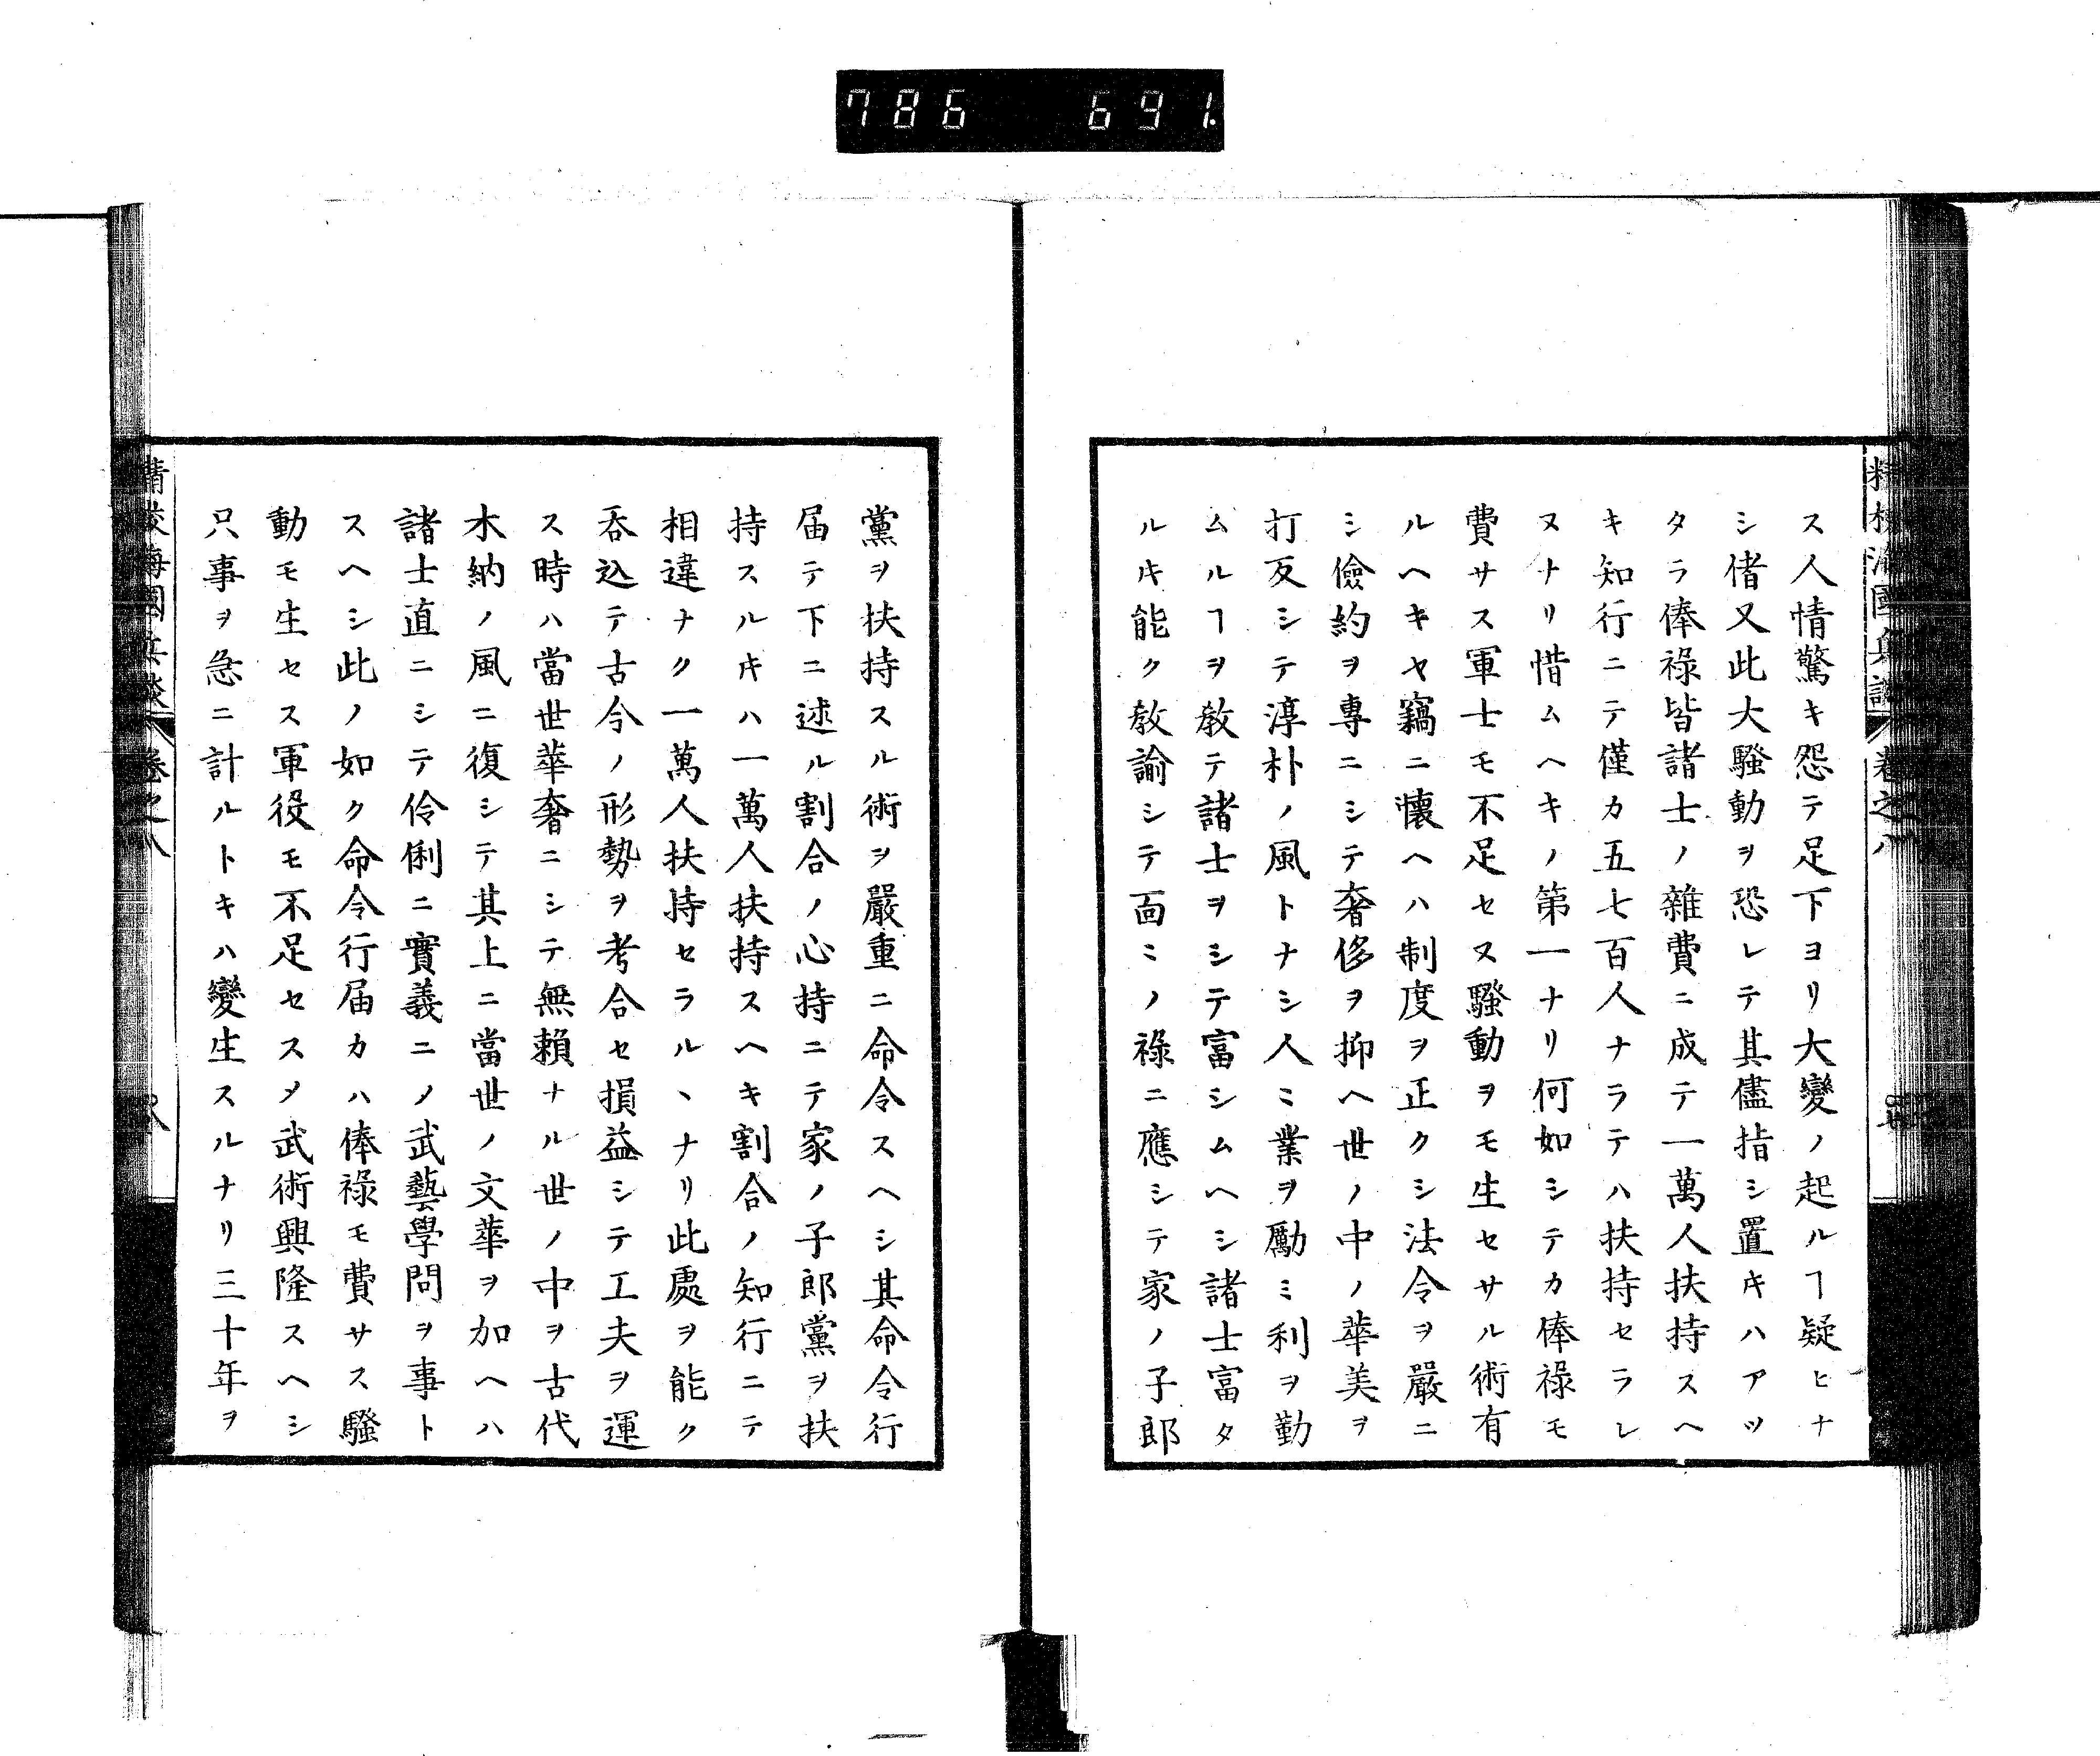 786 691.
ス人情驚キ怨テ足下ヨリ大變ノ起ルヿ疑ヒナ
シ偖又此大騷動ヲ恐レテ其儘指シ置キハアツ
タラ俸祿皆諸士ノ雜費ニ成テ一萬人扶持スヘ
キ知行ニテ僅カ五七百人ナラテハ扶持セラレ
ヌナリ惜ムヘキノ第一ナリ何如シテカ俸祿モ
費サス軍士モ不足セヌ騷動ヲモ生セサル術有
ルヘキヤ竊ニ懷ヘハ制度ヲ正クシ法令ヲ嚴ニ
シ儉約ヲ專ニシテ奢侈ヲ抑ヘ世ノ中ノ華美ヲ
打反シテ淳朴ノ風トナシ人〻業ヲ勵ミ利ヲ勤
ムルヿヲ敎テ諸士ヲシテ富シムヘシ諸士富タ
ルキ能ク敎諭シテ面〻ノ祿ニ應シテ家ノ子郎
精校海國兵談 卷之八
黨ヲ扶持スル術ヲ嚴重ニ命令スヘシ其命令行
届テ下ニ述ル割合ノ心持ニテ家ノ子郎黨ヲ扶
持スルキハ一萬人扶持スヘキ割合ノ知行ニテ
相違ナク一萬人扶持セラルヽナリ此處ヲ能ク
呑込テ古今ノ形勢ヲ考合セ損益シテ工夫ヲ運
ス時ハ當世華奢ニシテ無賴ナル世ノ中ヲ古代
木納ノ風ニ復シテ其上ニ當世ノ文華ヲ加ヘハ
諸士直ニシテ伶俐ニ實義ニノ武藝學問ヲ事ト
スヘシ此ノ如ク命令行届カハ俸祿モ費サス騷
動モ生セス軍役モ不足セスメ武術興隆スヘシ
只事ヲ急ニ計ルトキハ變生スルナリ三十年ヲ
精校海國兵談 卷之八